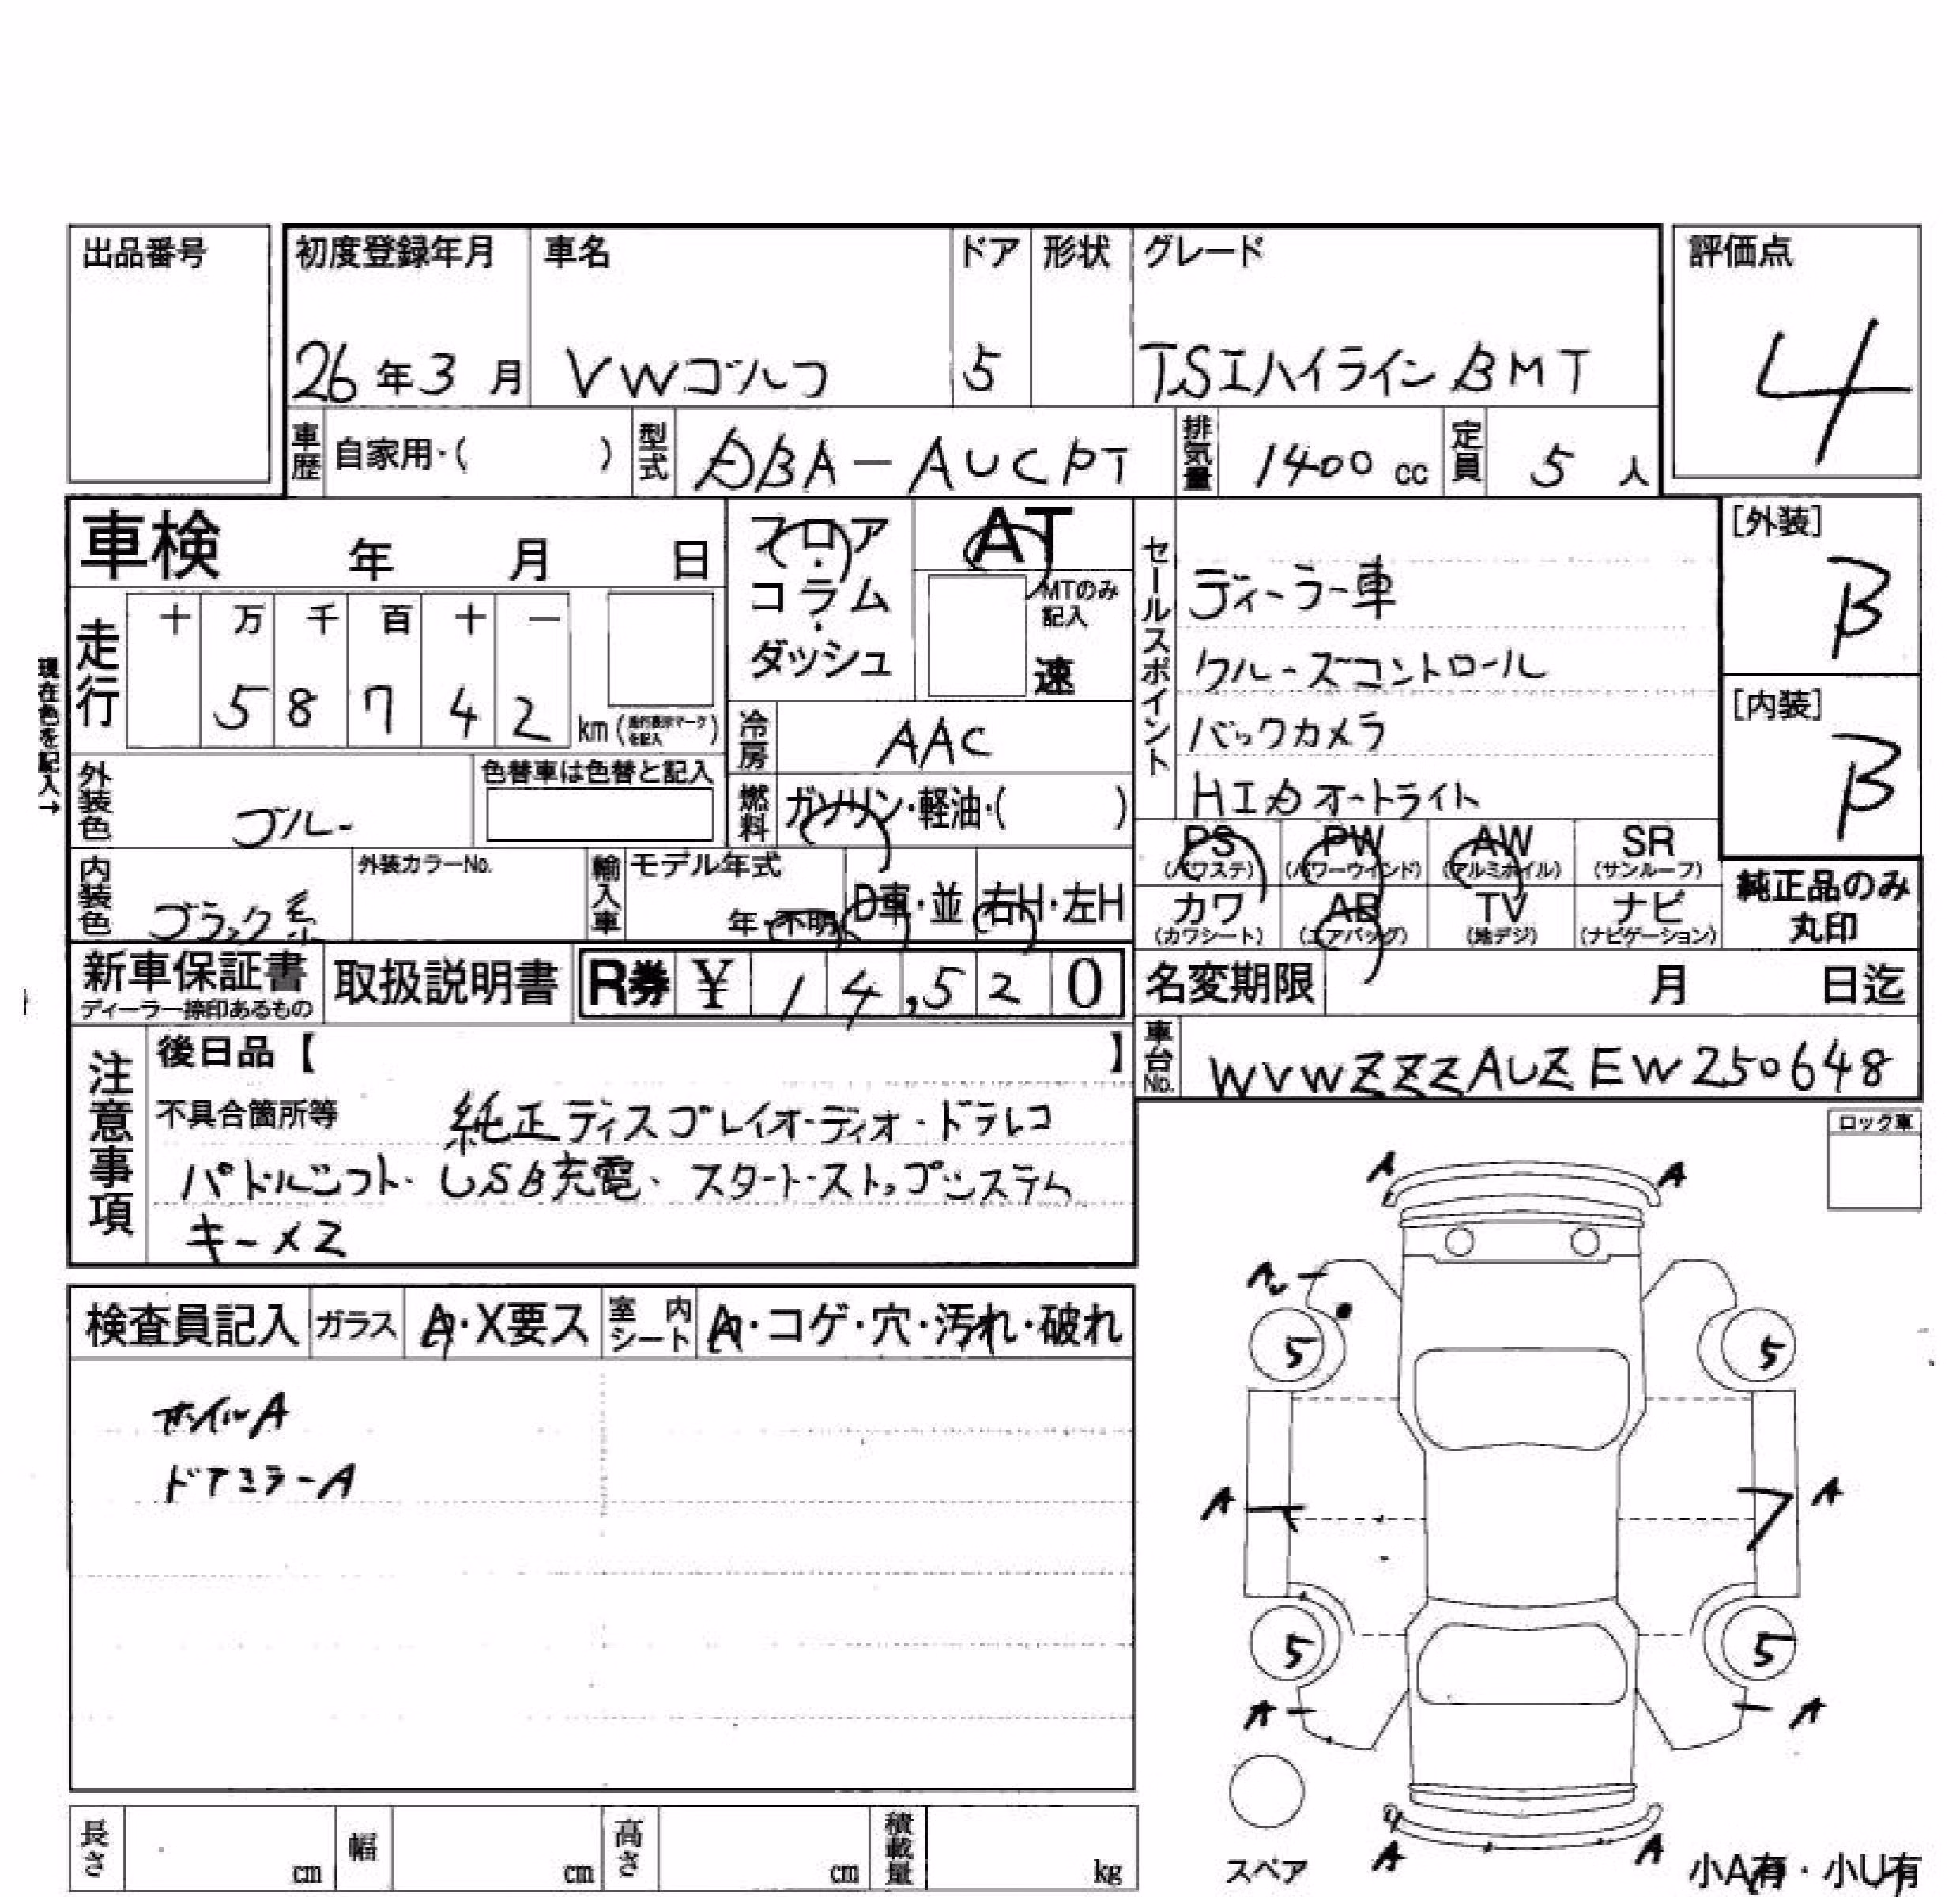 出品番号
初度登録年月 車名 ドア 形状 グレード 評価点
26年3月 VWゴルフ 5 TSIハイラインBMT 4
車歴 自家用・( ) 型式 DBA-AUCPT 排気量 1400cc 定員 5人
車検 年 月 日
フロア・コラム・ダッシュ
AT
MTのみ記入
速
セールスポイント
ディーラー車
クルーズコントロール
バックカメラ
HIDオートライト
[外装]
B
[内装]
B
現在色を記入→
走行 十 万 千 百 十 一
5 8 7 4 2 km (走行表示マークを記入)
冷房 AAC
外装色 ブルー
色替車は色替と記入
燃料 ガソリン・軽油・( )
PS (パワステ) PW (パワーウインド) AW (アルミホイル) SR (サンルーフ)
カワ (カワシート) AB (エアバッグ) TV (地デジ) ナビ (ナビゲーション)
純正品のみ丸印
内装色 ブラック系
外装カラーNo.
輸入車 モデル年式 年・不明 D車・並 右H・左H
新車保証書 ディーラー捺印あるもの 取扱説明書 R券 ¥ 14,520
名変期限 月 日迄
車台No. WVWZZZAUZEW250648
注意事項
後日品【 】
不具合箇所等 純正ディスプレイオーディオ・ドラレコ
パドルシフト・USB充電・スタートストップシステム
キー×2
ロック車
検査員記入 ガラス A・X要ス 室内シート A・コゲ・穴・汚れ・破れ
ホイルA
ドアミラーA
A A
A
5 5
A A
5 5
A A
A A
スペア
小A有・小U有
長さ cm 幅 cm 高さ cm 積載量 kg